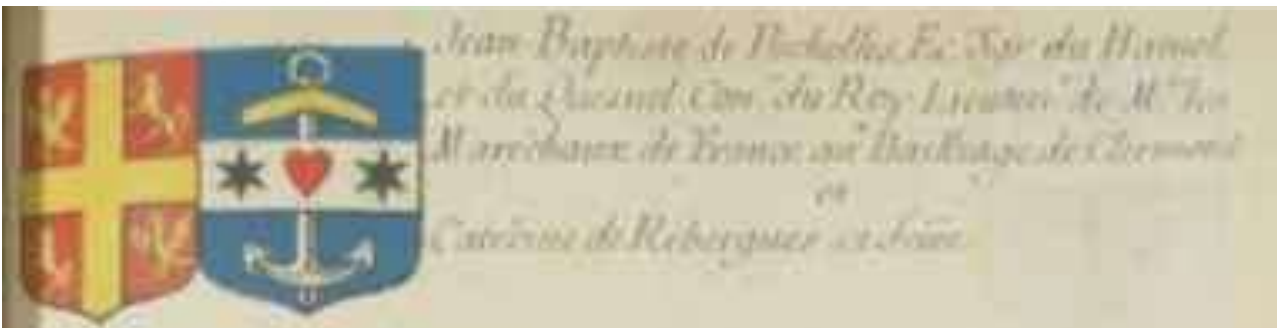 Jean Baptiste de Ec. du Hamel
et du Quesnel Con.er du Roy Lieuten.t de M.rs les
Maréchaux de France au Bailliage de Clermont
et
Caterine de Rebergues sa feme